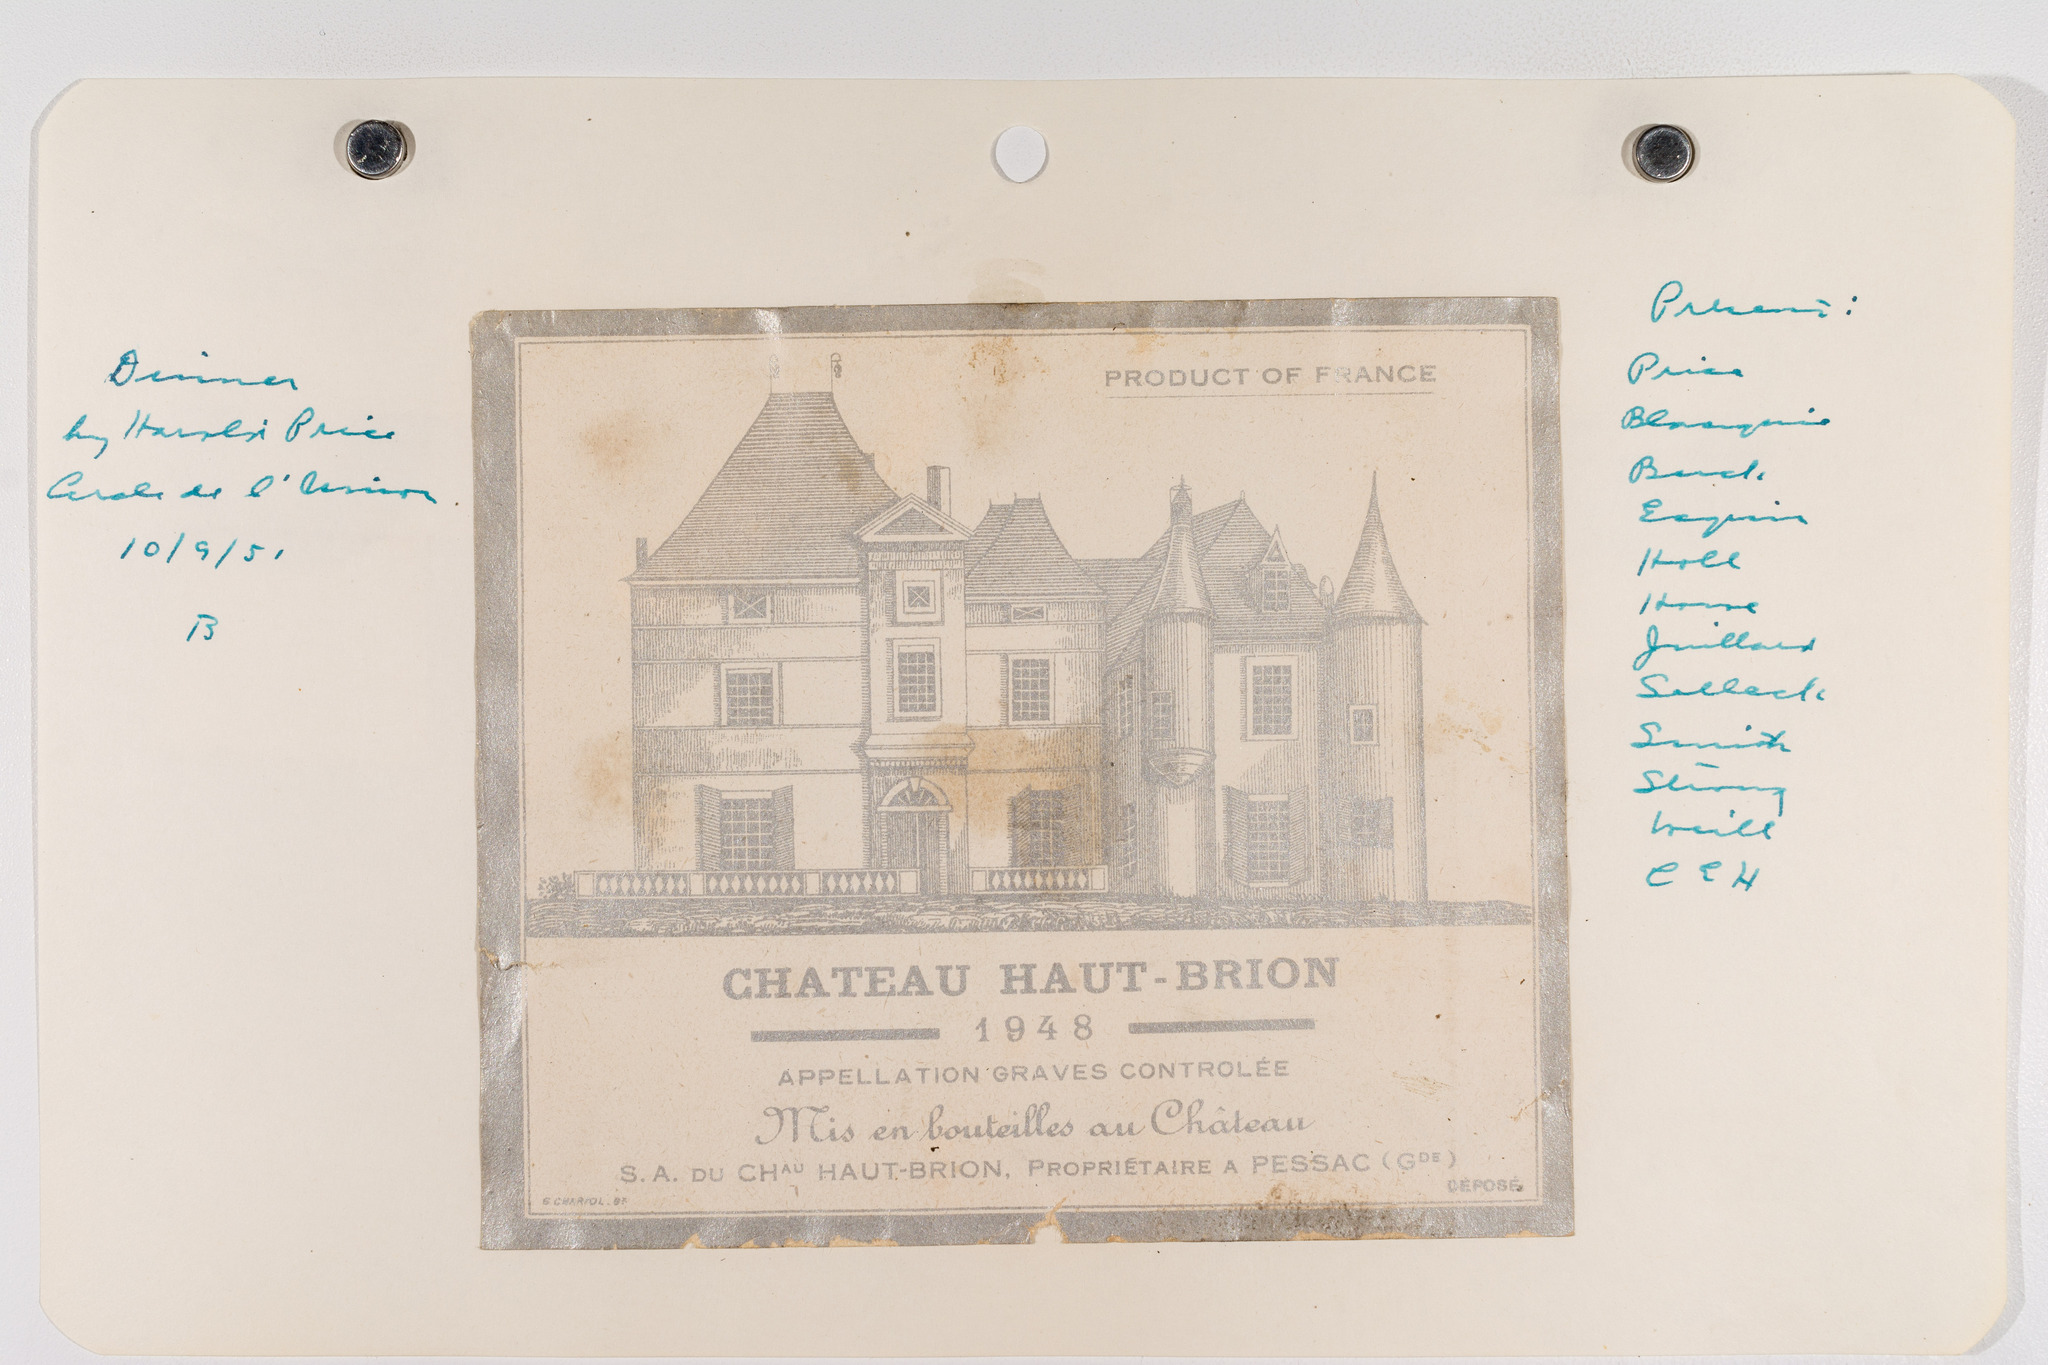 Dinner
by Harold Price
Cercle de l'Union
10/9/51
B
PRODUCT OF FRANCE
CHATEAU HAUT-BRION
1948
APPELLATION GRAVES CONTROLÉE
Mis en bouteilles au Château
S. A. DU CHAU HAUT-BRION, PROPRIÉTAIRE A PESSAC (GDE)
DÉPOSÉ
Present:
Price
Blanquie
Buck
Esquin
Holl
Howe
Juillard
Selleck
Smith
Strong
Weill
C E H